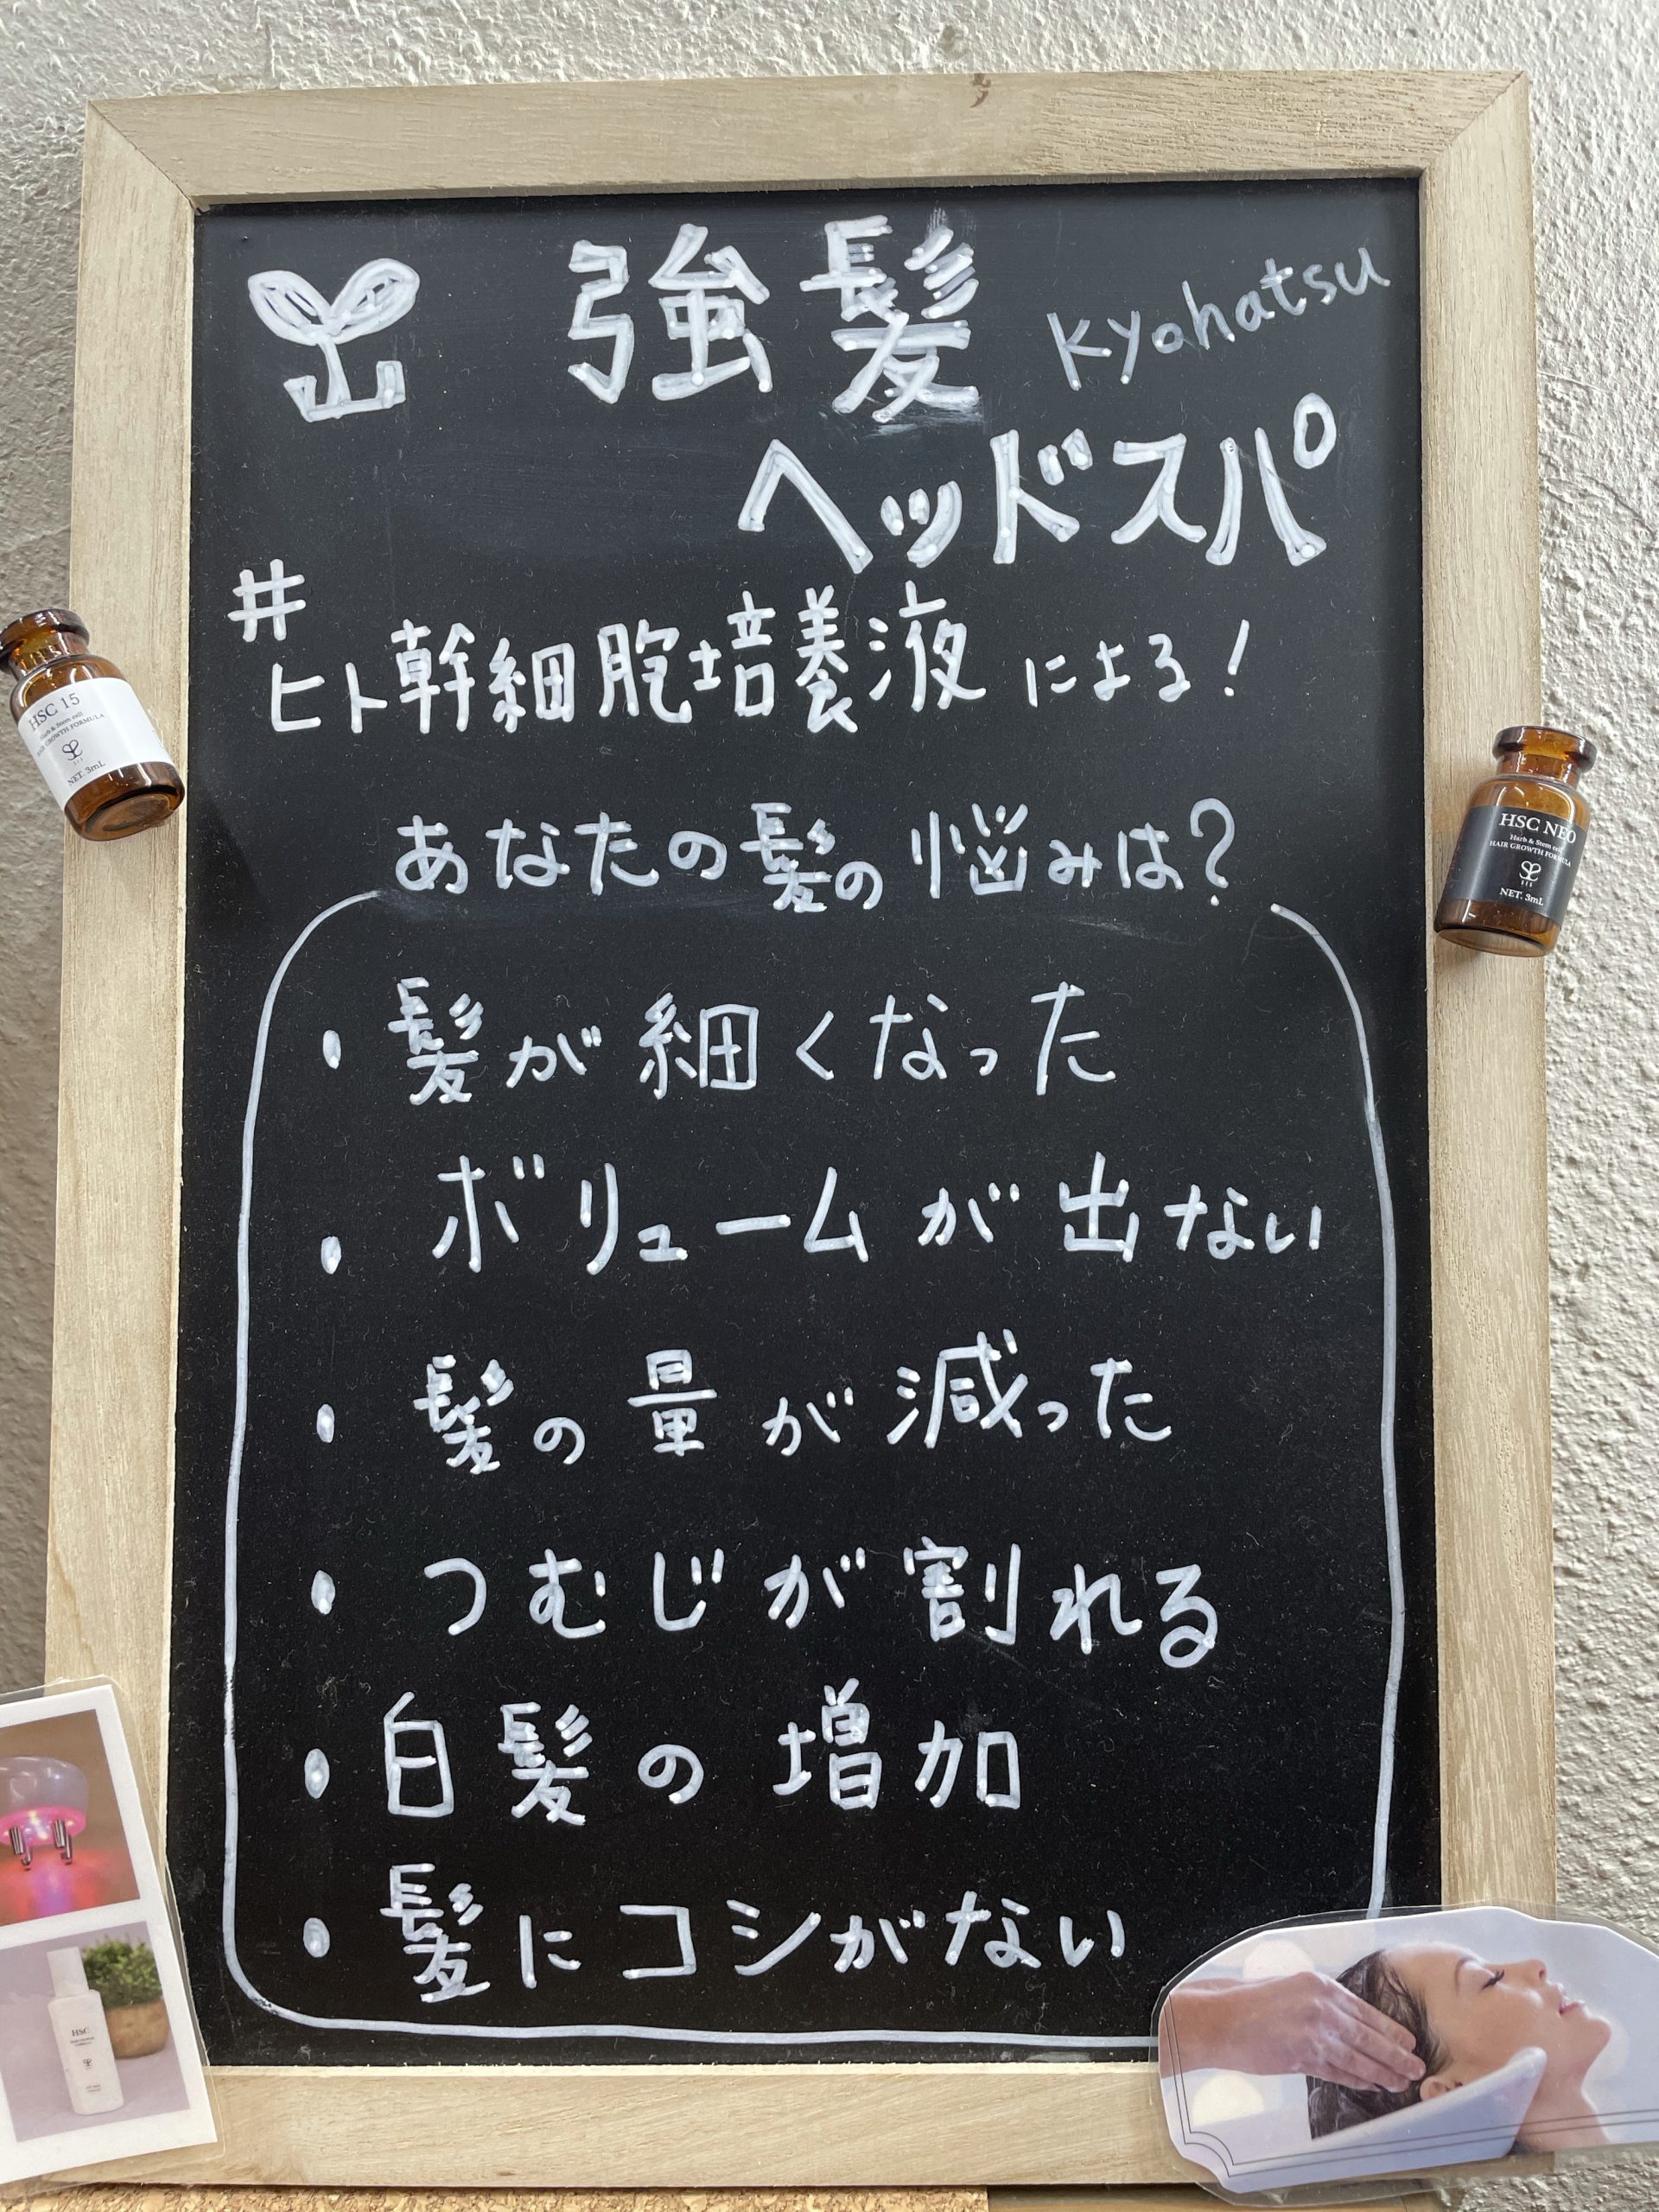 強髪 Kyohatsu
ヘッドスパ
#
ヒト幹細胞培養液による!
あなたの髪の悩みは?
・髪が細くなった
・ボリュームが出ない
・髪の量が減った
・つむじが割れる
・白髪の増加
・髪にコシがない
HSC 15
Herb & Stem cell
HAIR GROWTH FORMULA
NET. 3mL
HSC NEO
Herb & Stem cell
HAIR GROWTH FORMULA
NET. 3mL
HSC